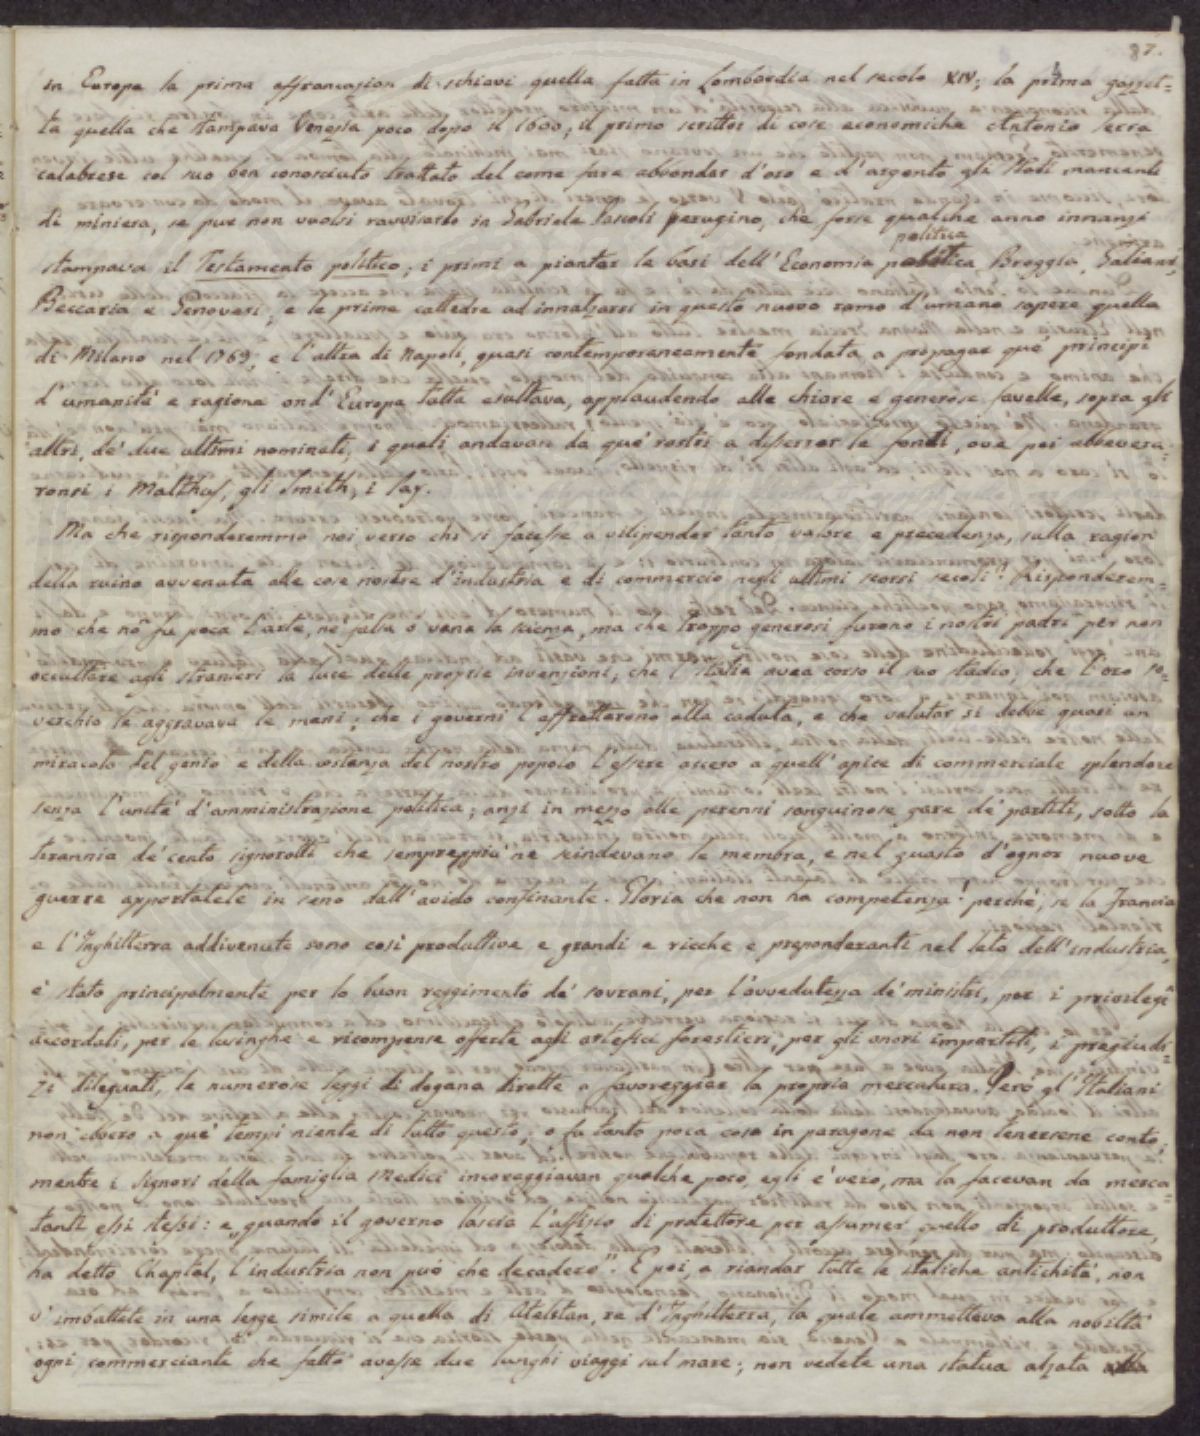 87.
in Europa la prima affrancazion di schiavi quella fatta in Lombardia nel secolo XIV; la prima gazzet=
ta quella che stampava Venezia poco dopo il 1600; il primo scrittor di cose economiche Antonio Serra
calabrese col suo ben conosciuto trattato del come fare abbondar d'oro e d'argento gli Stati mancanti
di miniera, se pur non vuolsi ravvisarlo in Gabriele Pascoli perugino, che forse qualche anno innanzi
politica
stampava il Testamento politico; i primi a piantar le basi dell'Economia Broggia, Galiani,
Beccaria e Genovesi; e le prime cattedre ad innalzarsi in questo nuovo ramo d'umano sapere quella
di Milano nel 1769; e l'altra di Napoli, quasi contemporaneamente fondata a propagar que' principî
d'umanità e ragione ond'Europa tutta esultava, applaudendo alle chiare e generose favelle, sopra gli
altri, de' due ultimi nominati, i quali andavan da que' rostri a disserrar le fonti, ove poi abbevera=
ronsi i Malthus, gli Smith, i Say.
Ma che risponderemmo noi verso chi si facesse a vilipender tanto valore e precedenza, sulla ragion
della ruina avvenuta alle cose nostre d'industria e di commercio negli ultimi scorsi secoli? Risponderem=
mo che nõ fu poca l'arte, nè falsa o vana la scienza, ma che troppo generosi furono i nostri padri per non
occultare agli stranieri la luce delle proprie invenzioni; che l'Italia avea corso il suo stadio; che l'oro so=
verchio le aggravava le mani; che i governi l'affrettarono alla caduta, e che valutar si debbe quasi un
miracolo del genio e della costanza del nostro popolo l'essere asceso a quell'apice di commerciale splendore
senza l'unità d'amministrazione politica; anzi in mezzo alle perenni sanguinose gare de' partiti, sotto la
tirannia de' cento signorotti che sempreppiù ne scindevano le membra, e nel guasto d'ognor nuove
guerre apportatele in seno dall'avido confinante. Gloria che non ha competenza! perchè, se la Francia
e l'Inghilterra addivenute sono così produttive e grandi e ricche e preponderanti nel lato dell'industria,
è stato principalmente per lo buon reggimento de' sovrani, per l'avvedutezza de' ministri, per i privilegî
accordati, per le lusinghe e ricompense offerte agli artefici forestieri, per gli onori impartiti, i pregiudi=
zi dileguati, le numerose leggi di dogana dirette a favoreggiar la propria mercatura. Però gl'Italiani
non ebbero a que' tempi niente di tutto questo; o fu tanto poca cosa in paragone da non tenersene conto;
mentre i Signori della famiglia Medici incoraggiavan qualche poco, egli è vero, ma la facevan da merca=
tanti essi stessi: e „quando il governo lascia l'uffizio di protettore per assumer quello di produttore,
ha detto Chaptal, l'industria non può che decadere". E poi, a riandar tutte le italiche antichità, non
v'imbattete in una legge simile a quella di Atelstan, re d'Inghilterra, la quale ammetteva alla nobiltà
ogni commerciante che fatto avesse due lunghi viaggi sul mare; non vedete una statua alzata alla